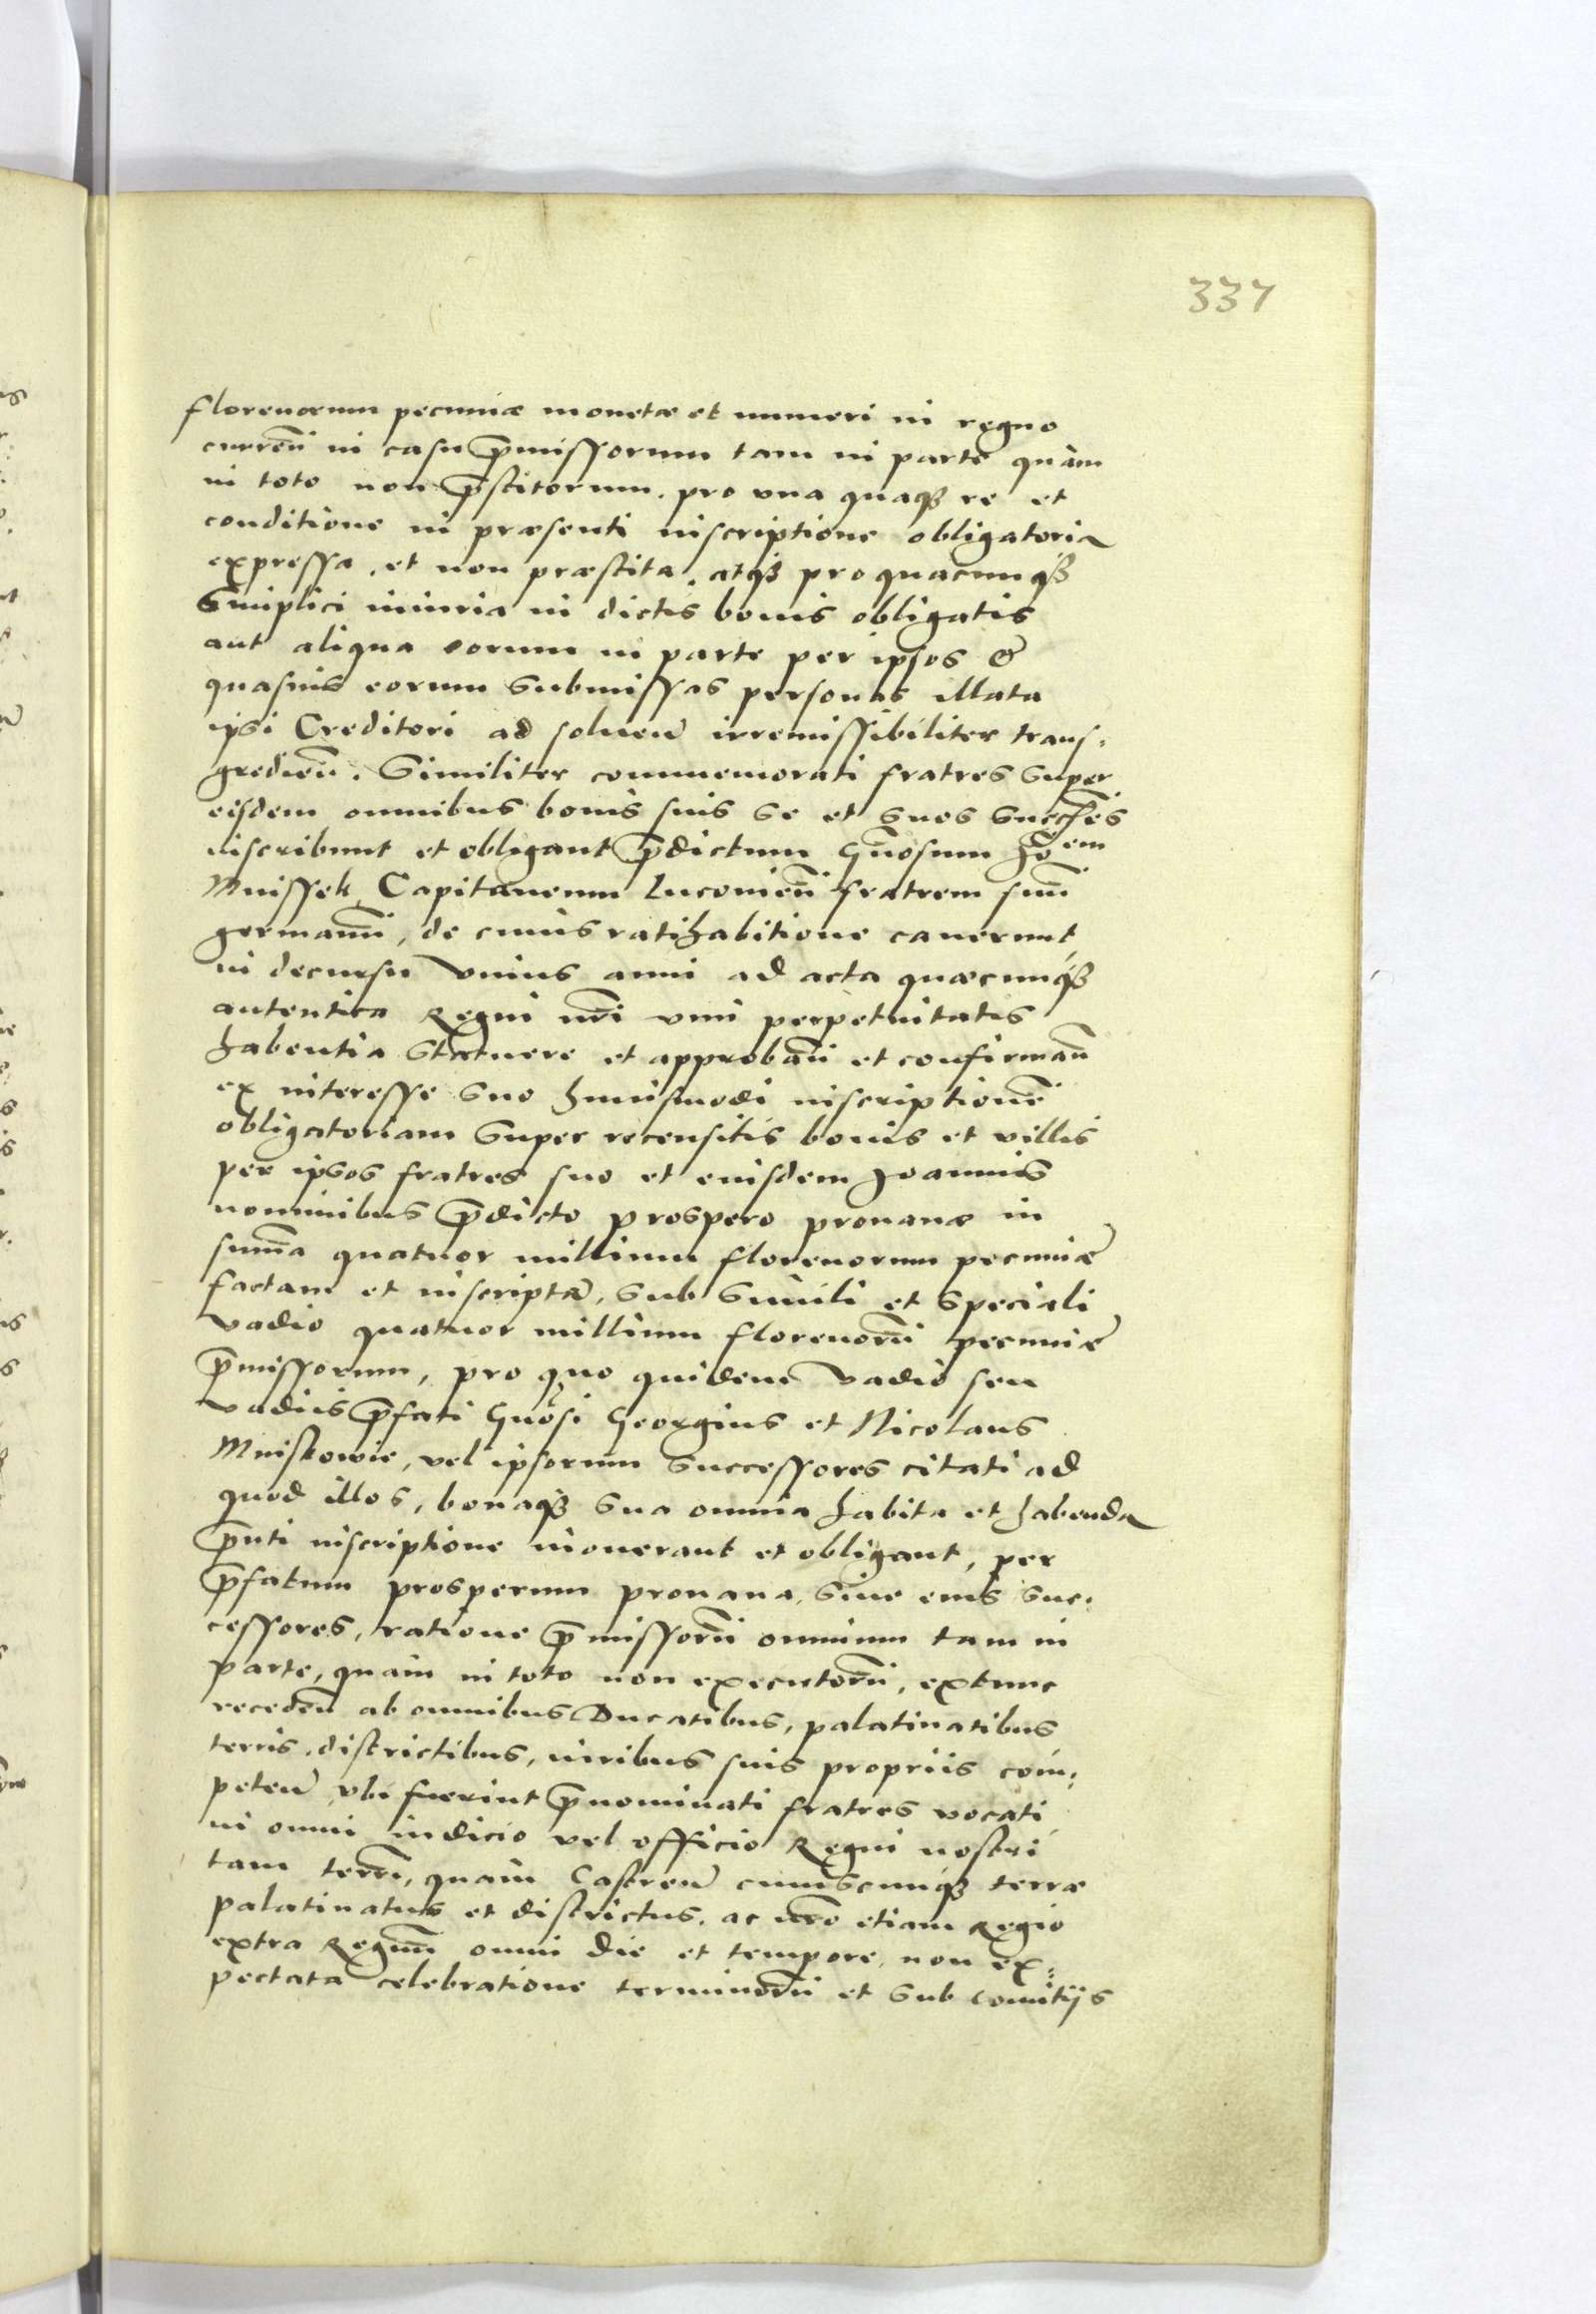 337
florenorum pecuniæ monetæ et numeri in regno
curreñ in casu p̄missorum tam in parte quàm
in toto non p̄stitorum. pro vna quaqȝ re et
conditione in præsenti inscriptione obligatoria
expressa, et non præstita, atqȝ pro quacunqȝ
simplici iniuria in dictis bonis obligatis
aut aliqua eorum in parte per ipsos &
quasuis eorum submissas personas illata
ipsi Creditori ad soluen̄ irremissibiliter trans,
gredien̄. Similiter commemorati fratres super
eisdem omnibus bonis suis se et suos succes̄s
inscribunt et obligant p̄dictum G̃nosum Jo͠em
Mnissek Capitaneum Luconien̄ fratrem suū
germanū, de cuius ratihabitione cauerunt
in decursu vnius anni ad acta quæcunqȝ
autentica Regni nr̄i vim perpetuitatis
habentia statuere et approbañ et confirmañ
ex interesse suo huiusmodi inscriptionē
obligatoriam super recensitis bonis et villis
per ipsos fratres suo et eiusdem Joannis
nominibus p̄dicto prospero prouanæ in
summ̃a quatuor millium florenorum pecuniæ
factam et inscriptā, sub simili et speciali
vadio quatuor millium florenorū pecuniæ
p̄missorum, pro quo quidem vadio seu
vadiis p̄fati G̃nosi Georgius et Nicolaus
Mniskowie, vel ipsorum successores citati ad
quod illos, bonaqȝ sua omnia habita et habenda
p̄nti inscriptione inonerant et obligant, per
p̄fatum prosperum prouana, siue eius suc,
cessores, ratione p̄missorū omnium tam in
parte, quàm in toto non executorū, extunc
receden̄ ab omnibus Ducatibus, palatinatibus
terris, districtibus, iuribus suis propriis com,
peten̄ vbi fuerint p̄nominati fratres vocati
in omni iudicio vel officio Regni nostri
tam terrñ, quàm Castren̄ cuiuscunqȝ terræ
palatinatus et districtus, ac nr̄o etiam Regio
extra Regnū omni die et tempore, non ex,
pectata celebratione terminorū et sub comitijs